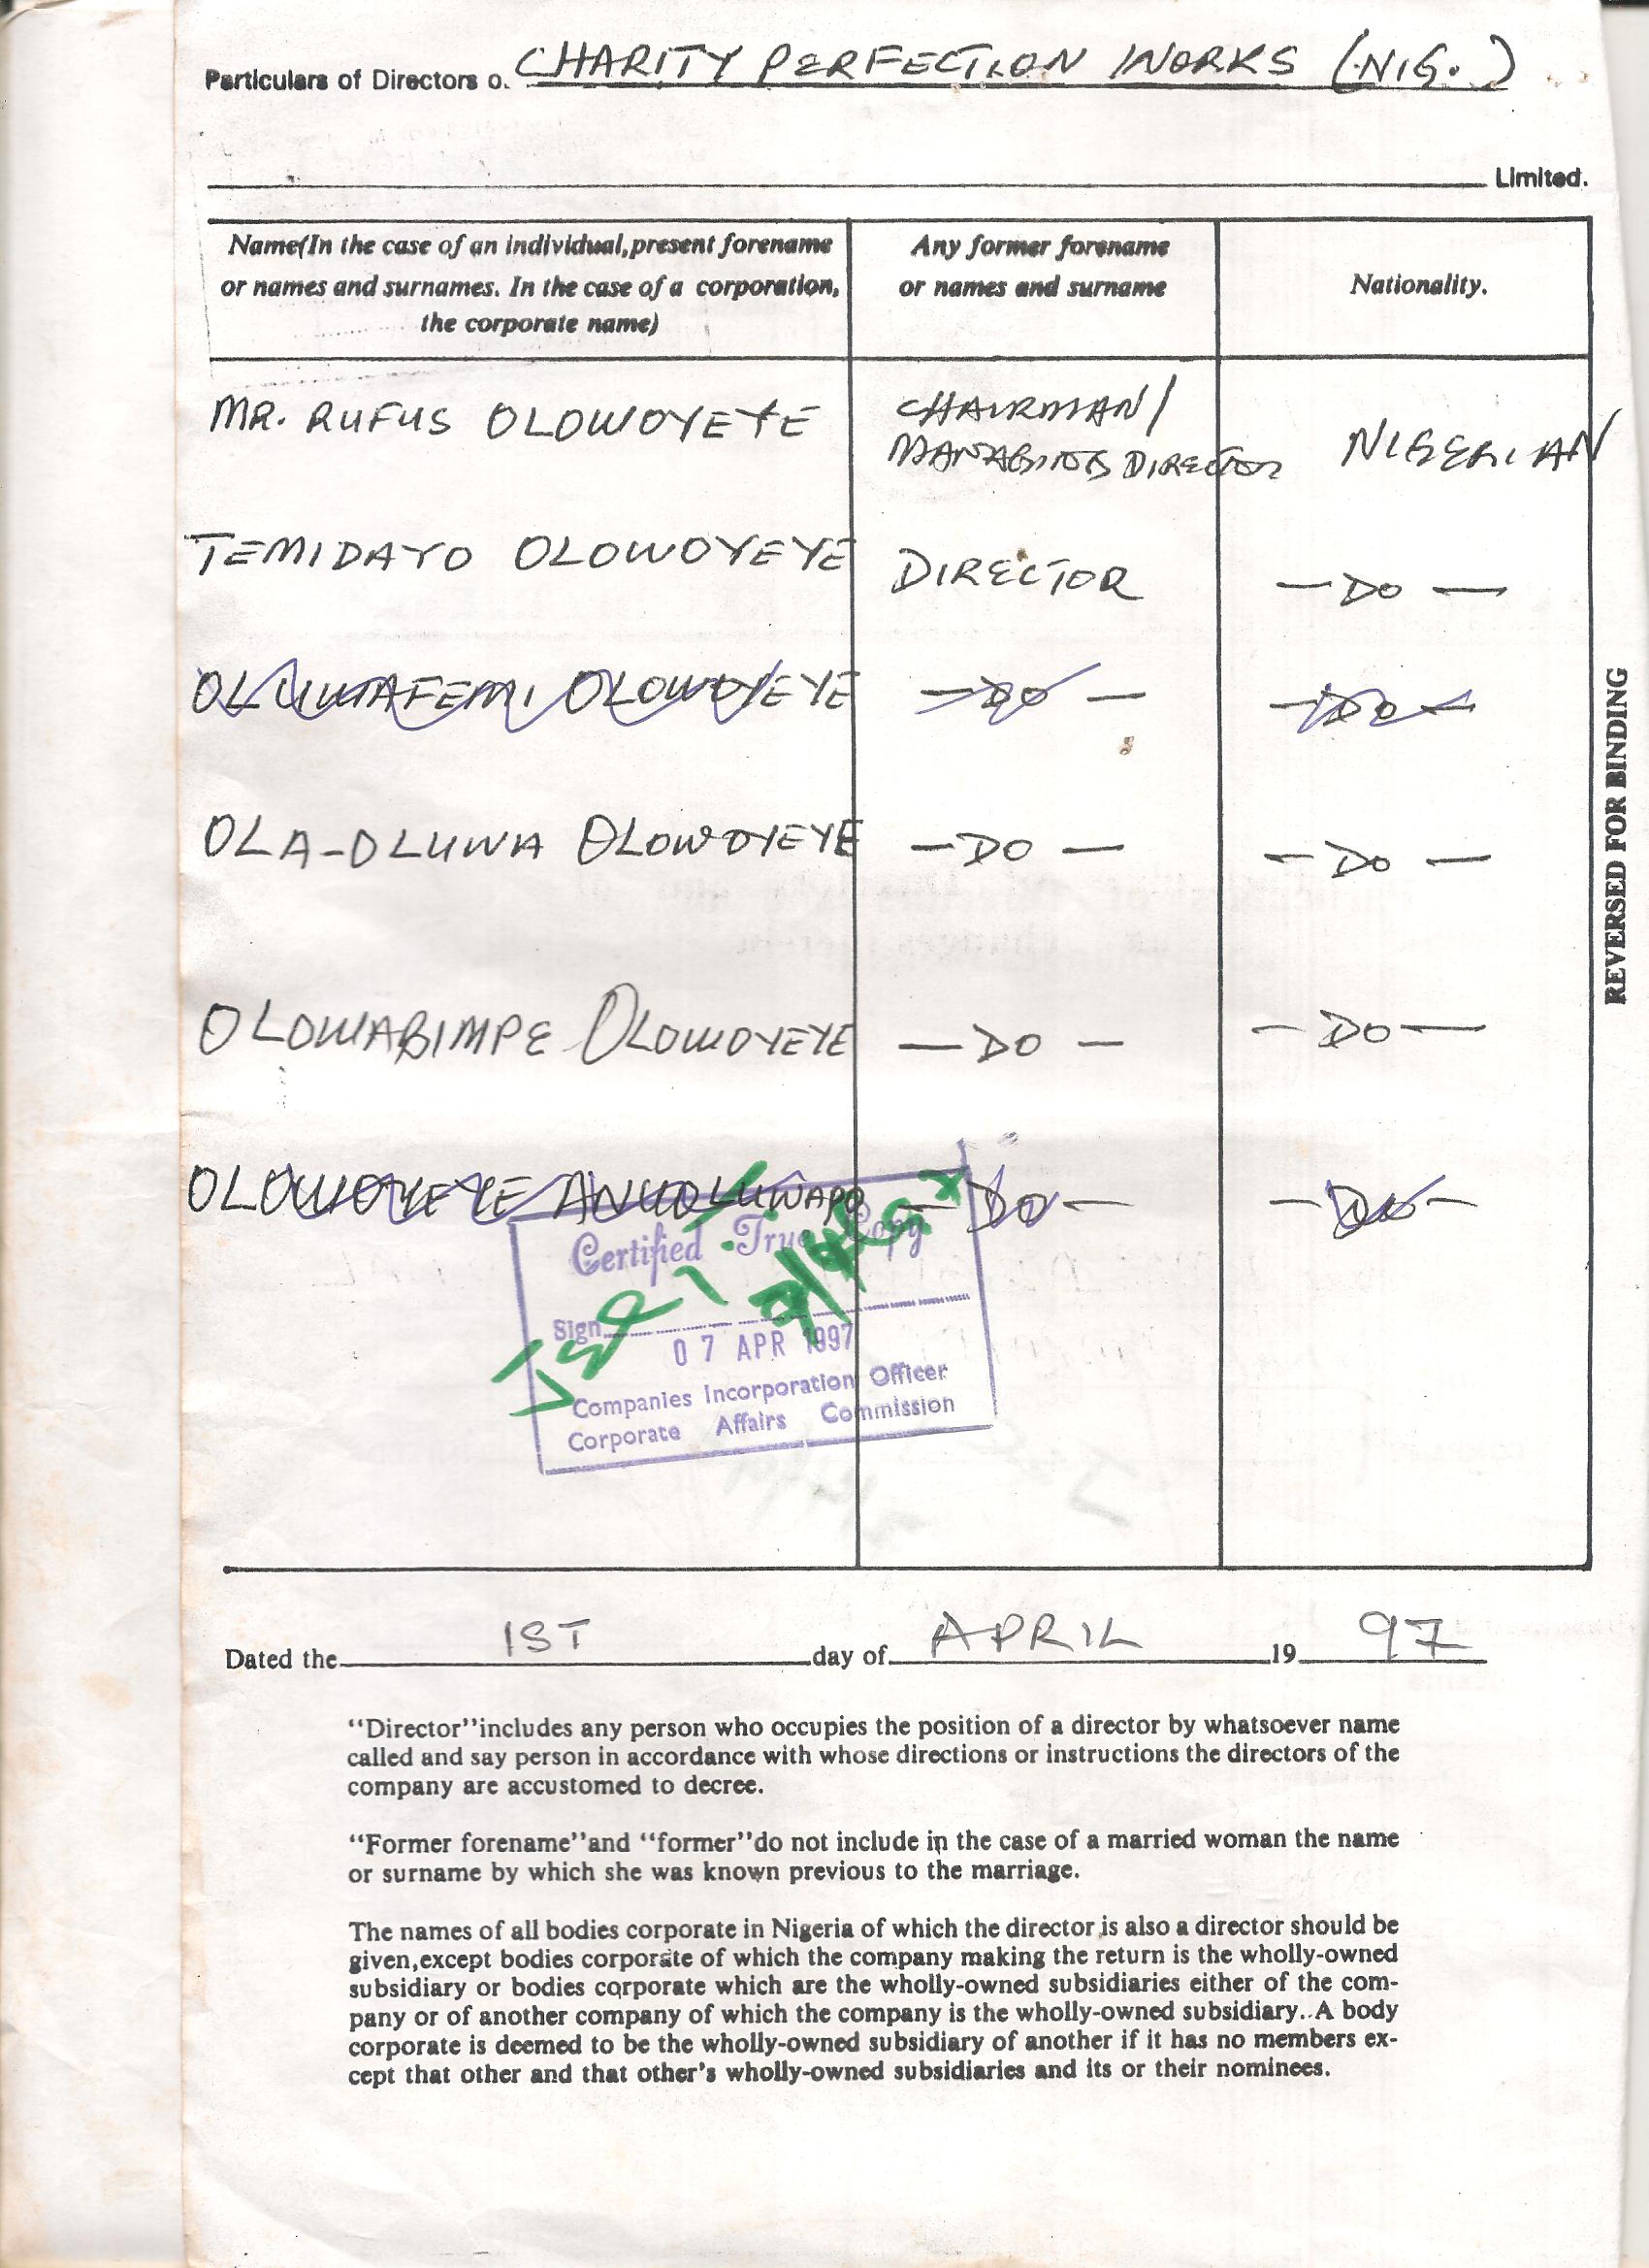 Particulars of Directors o. CHARITY PERFECTION WORKS (NIG.)
Limited.
Name(In the case of an individual,present forename
or names and surnames. In the case of a corporation,
the corporate name)
Any former forename
or names and surname
Nationality.
MR. RUFUS OLOWOYEYE
CHAIRMAN/
MANAGING DIRECTOR
NIGERIAN
TEMIDAYO OLOWOYEYE DIRECTOR —DO—
OLUWAFEMI OLOWOYEYE —DO— —DO—
OLA-OLUWA OLOWOYEYE —DO— —DO—
OLOWABIMPE OLOWOYEYE —DO— —DO—
OLOWOYEYE ANUOLUWAPO —DO— —DO—
Certified True Copy
Sign
07 APR 1997
Companies Incorporation Officer
Corporate Affairs Commission
REVERSED FOR BINDING
Dated the 1ST day of APRIL 19 97
"Director"includes any person who occupies the position of a director by whatsoever name
called and say person in accordance with whose directions or instructions the directors of the
company are accustomed to decree.
"Former forename"and "former"do not include in the case of a married woman the name
or surname by which she was known previous to the marriage.
The names of all bodies corporate in Nigeria of which the director is also a director should be
given,except bodies corporate of which the company making the return is the wholly-owned
subsidiary or bodies corporate which are the wholly-owned subsidiaries either of the com-
pany or of another company of which the company is the wholly-owned subsidiary..A body
corporate is deemed to be the wholly-owned subsidiary of another if it has no members ex-
cept that other and that other's wholly-owned subsidiaries and its or their nominees.